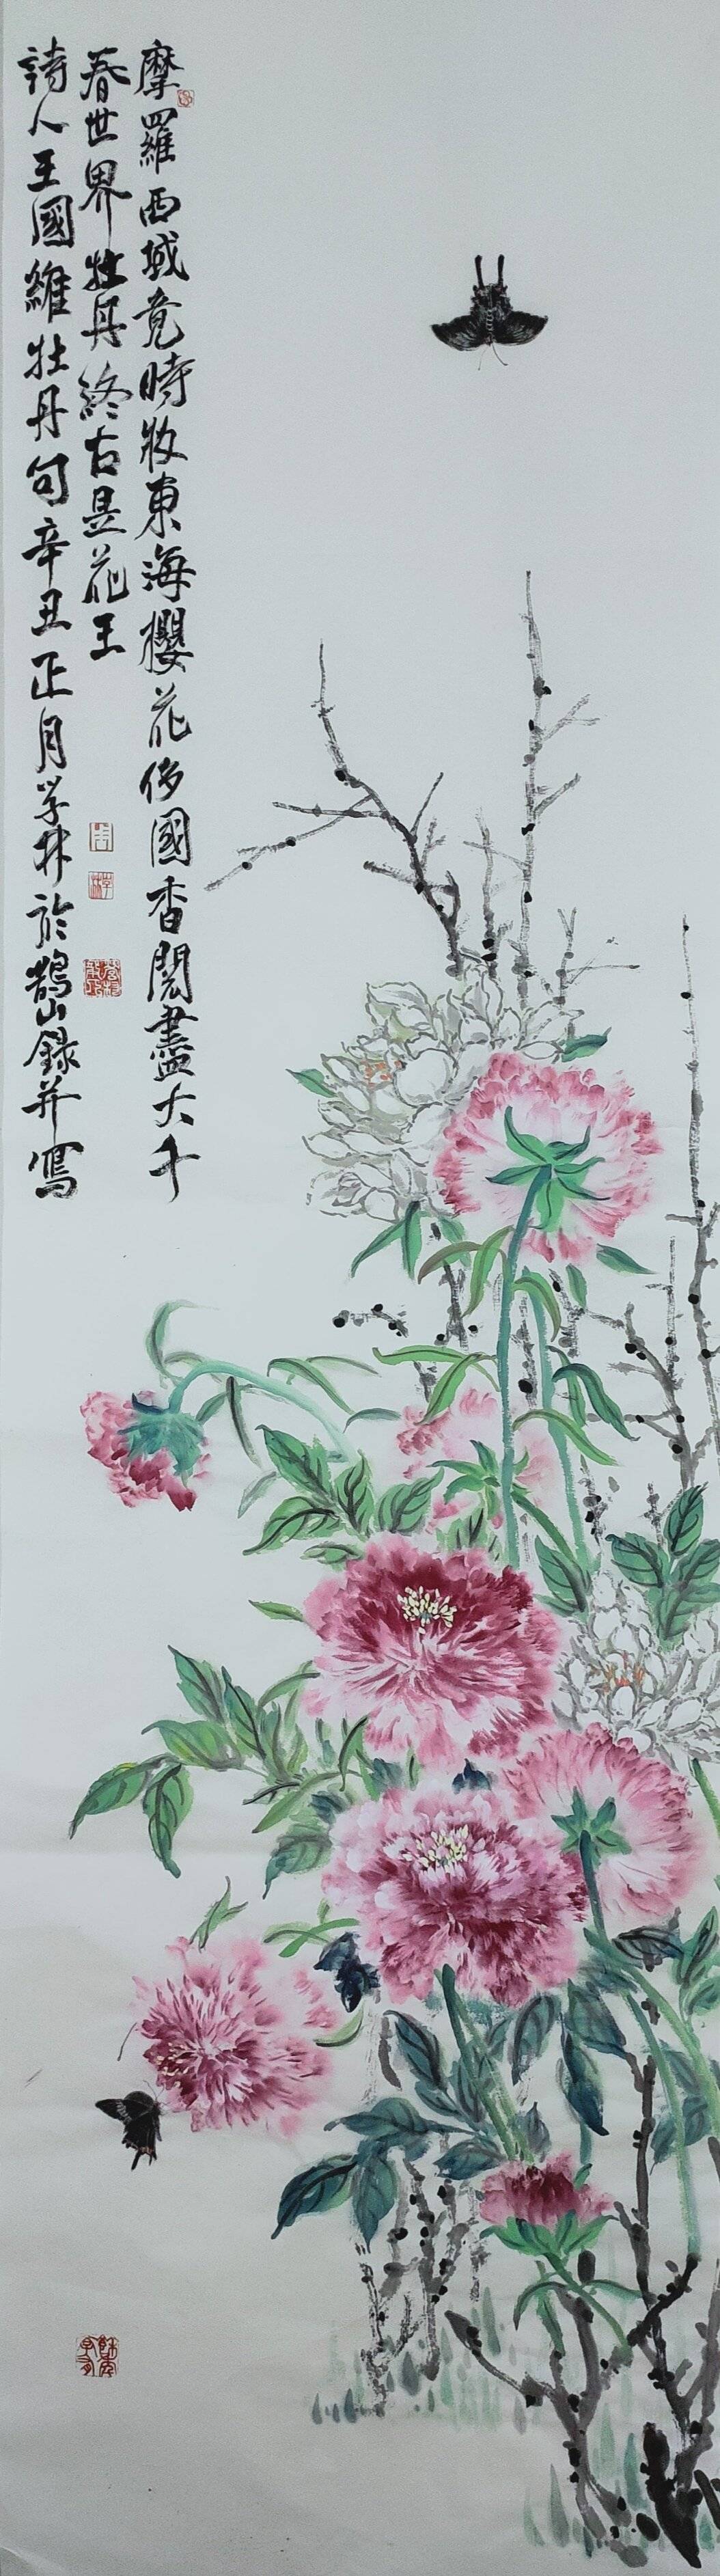 摩羅西域竟時妝東海櫻花侈國香閱盡大千
春世界牡丹終古是花王
詩人王國維牡丹句辛丑正月学林於鵲山録并寫